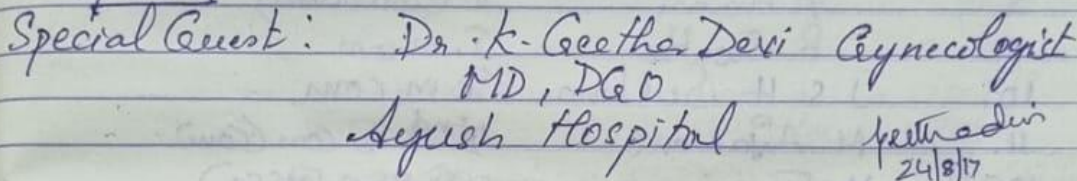 Special Guest : Dr. K. Geetha Devi Gynecologist
MD, DGO
Ayush Hospital
24/8/17